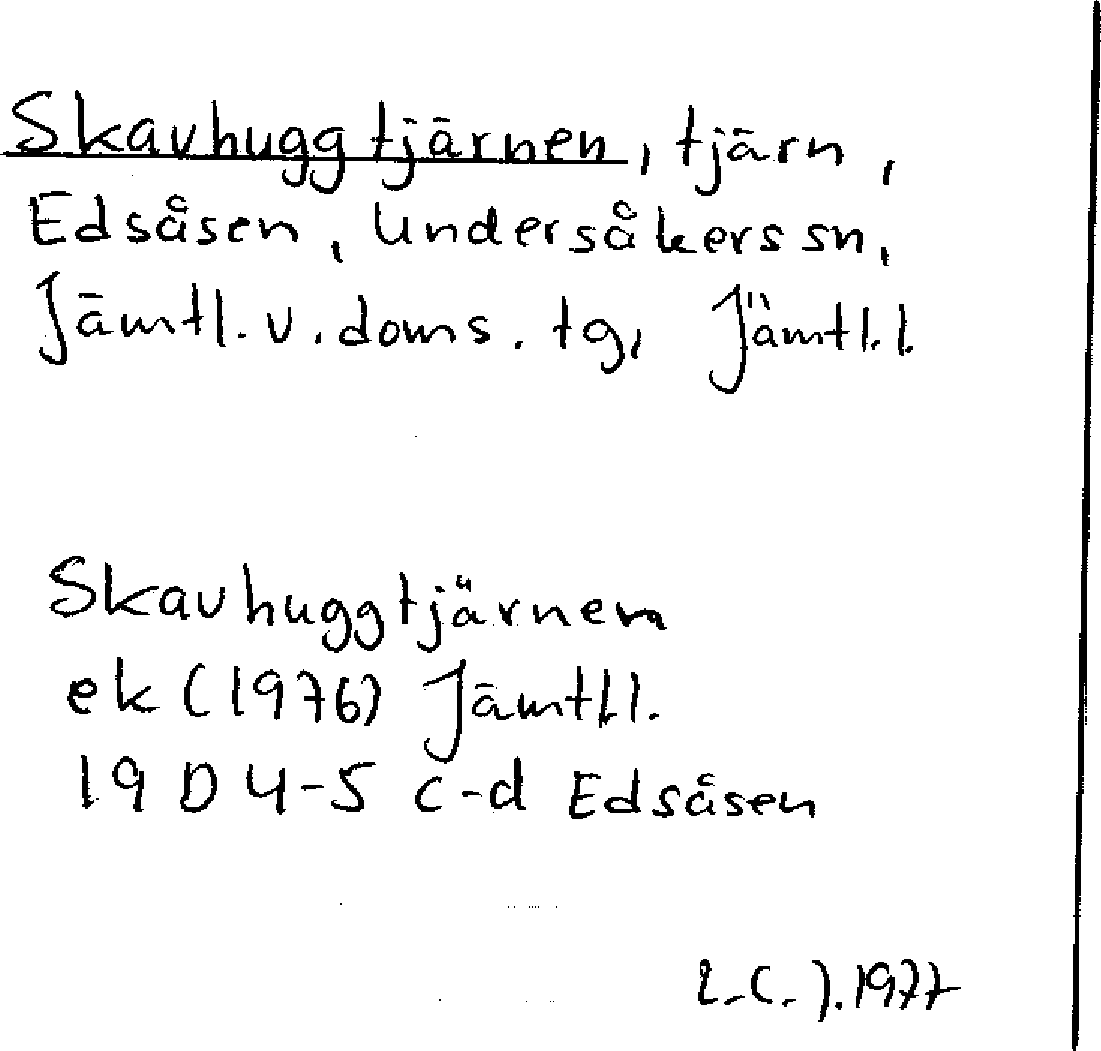 Skavhuggtjärnen, tjärn,
Edsåsen, Undersåkers sn,
Jämtl. v. doms. tg, Jämtl. l.
Skavhuggtjärnen
ek (1976) Jämtl l.
19 D 4-5 c-d Edsåsen
L-C. J. 1977